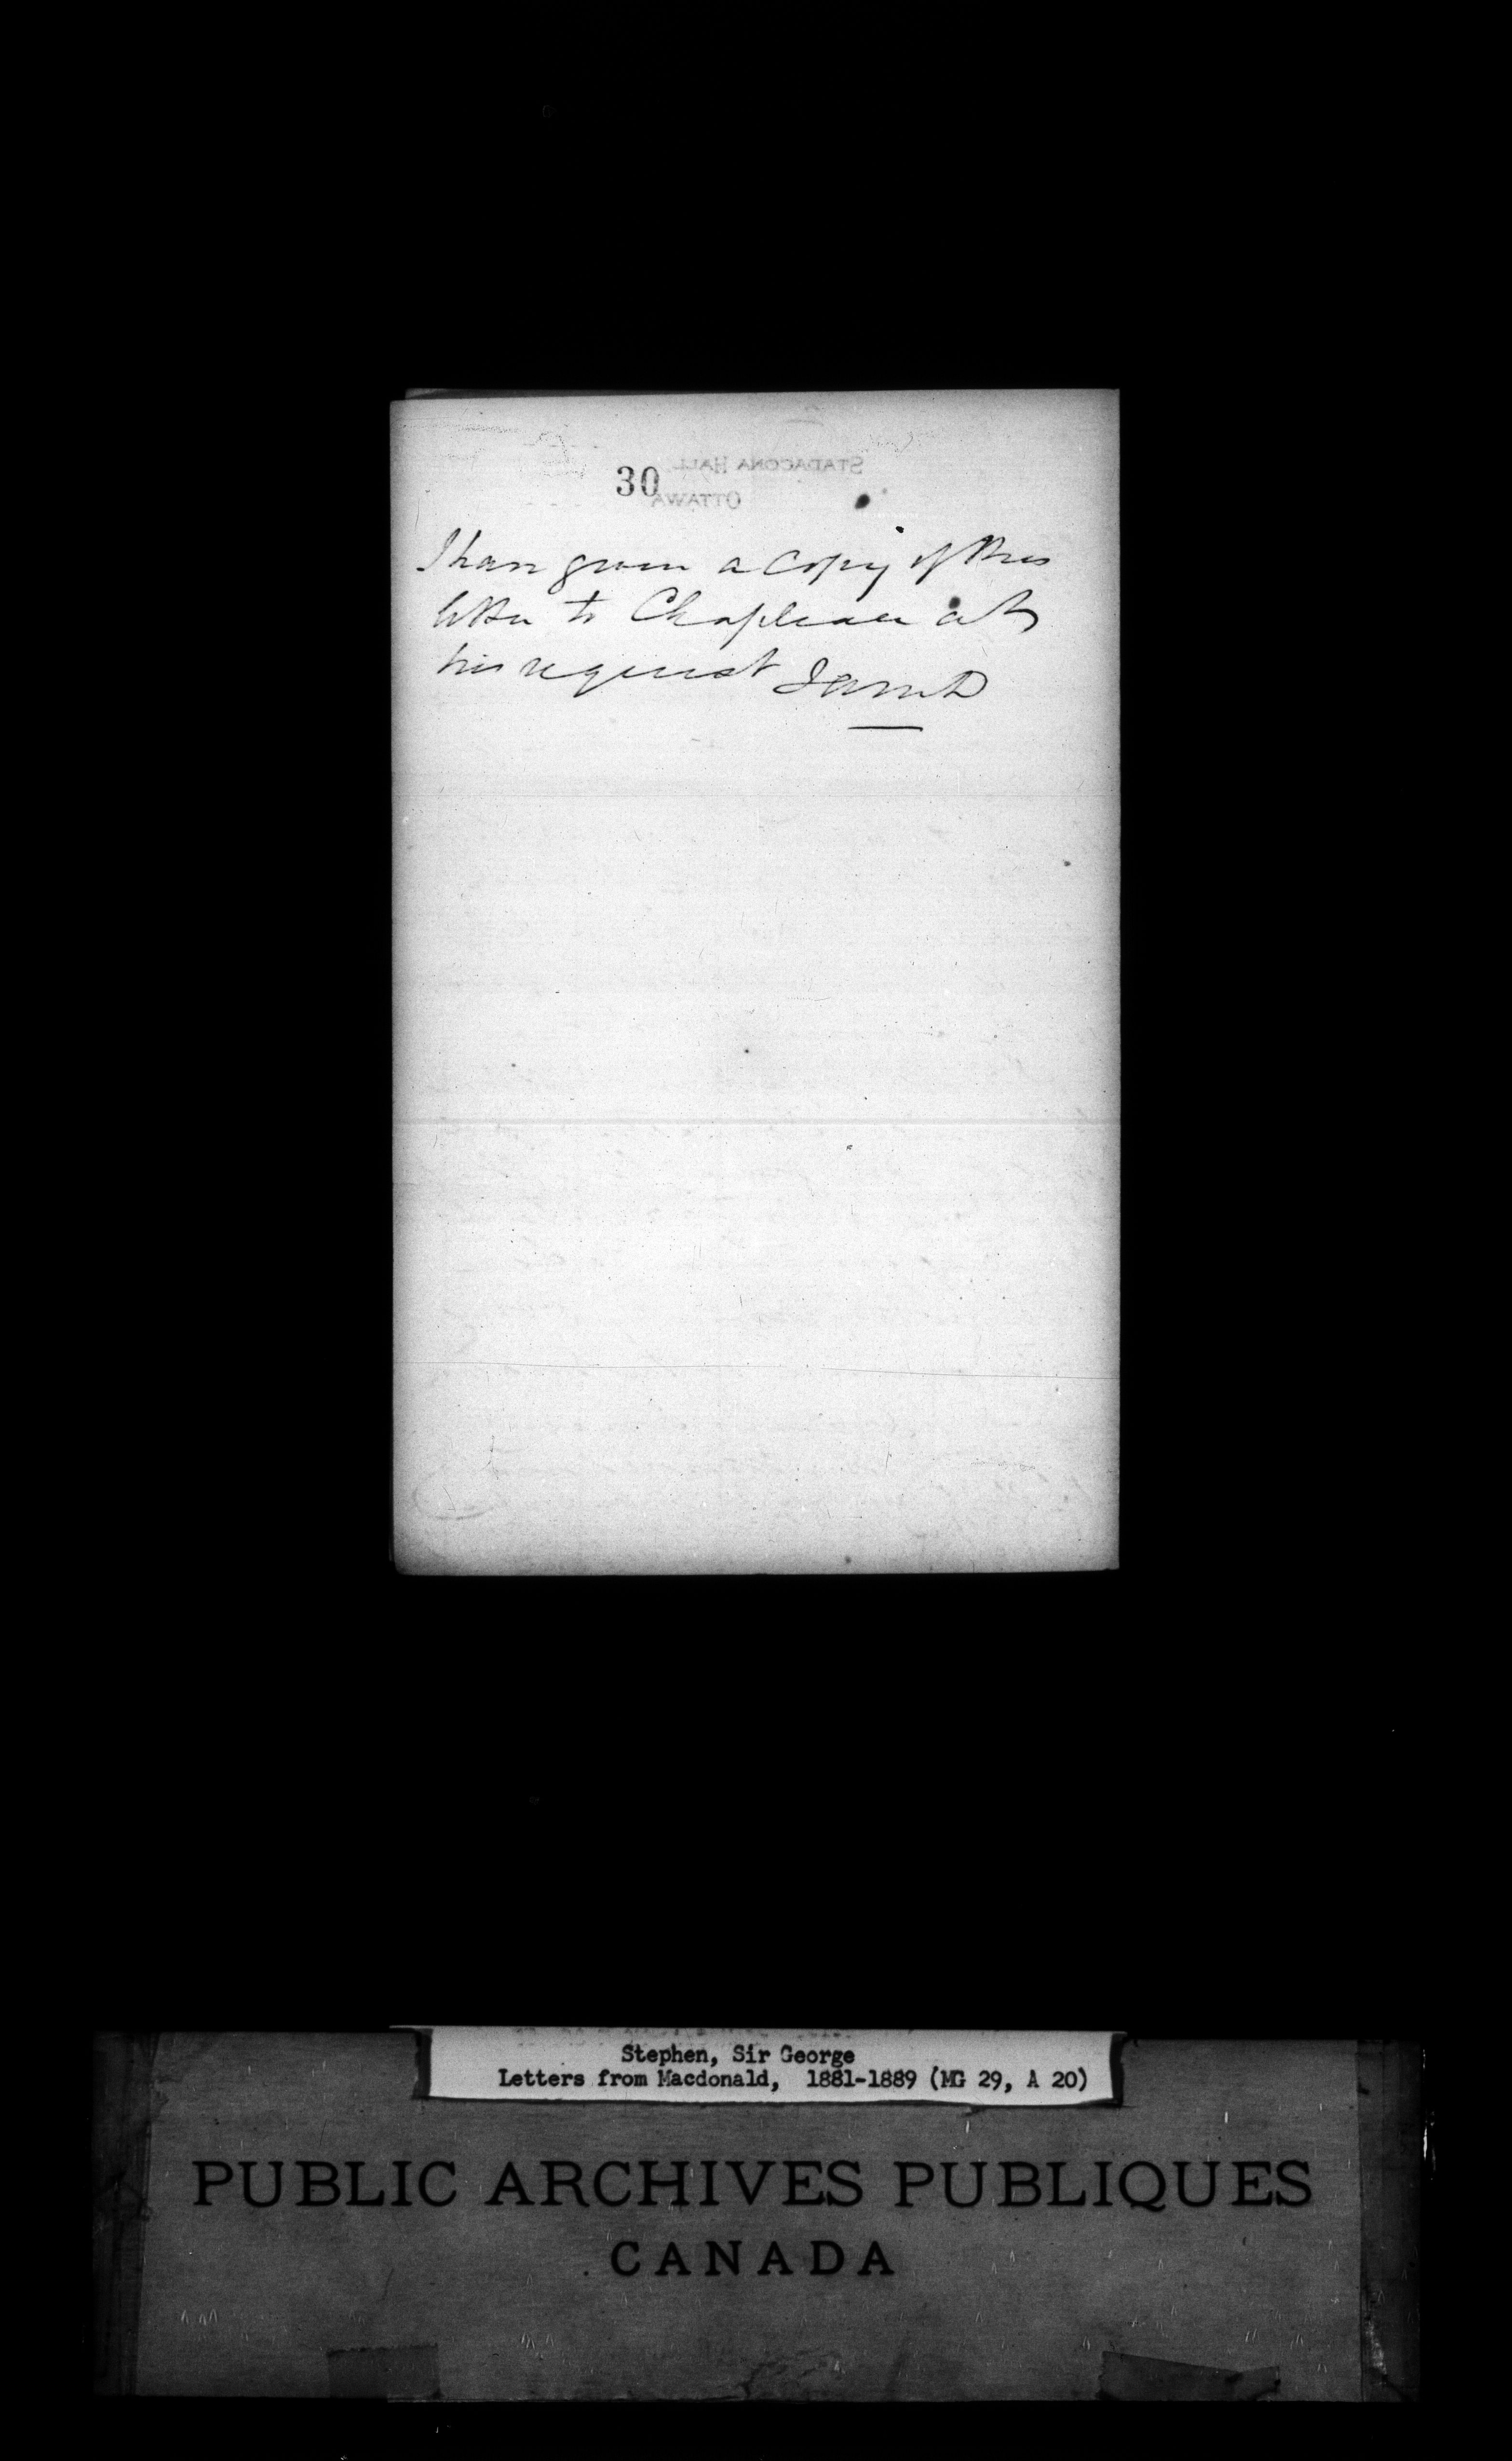 STADACONA HALL
30
OTTAWA
I have given a copy of this
letter to Chapleau at
his request JAMD
Stephen, Sir George
Letters from Macdonald, 1881-1889 (MG 29, A 20)
PUBLIC ARCHIVES PUBLIQUES
CANADA